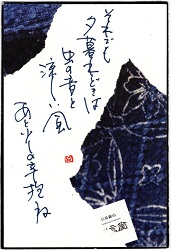 それでも
夕暮れどきは
虫の音と
涼しい風
あと少しの辛抱ね